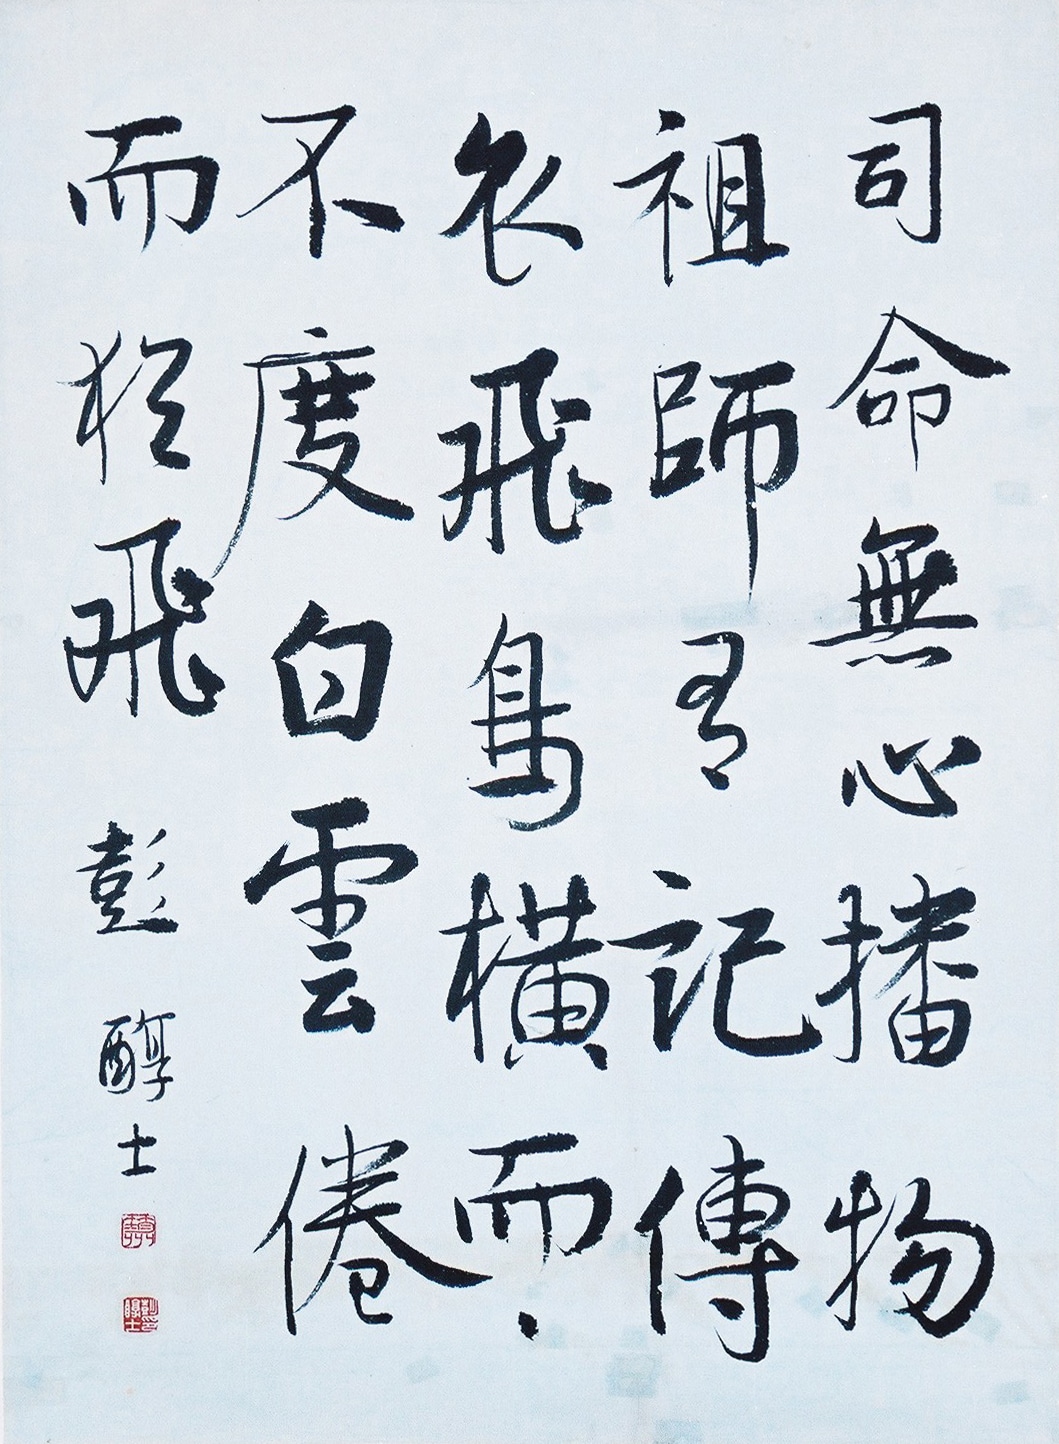 司命無心播物
祖師有記傳
衣飛鳥橫而
不度白雲倦
而猶飛 彭醇士